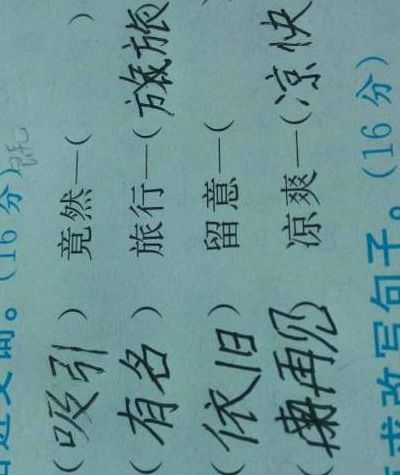 近义词。(16分)
(吸引) 竟然—( )
(有名) 旅行—(
(依旧) 留意—( )
(再见 凉爽—(凉快
求改写句子。(16分)